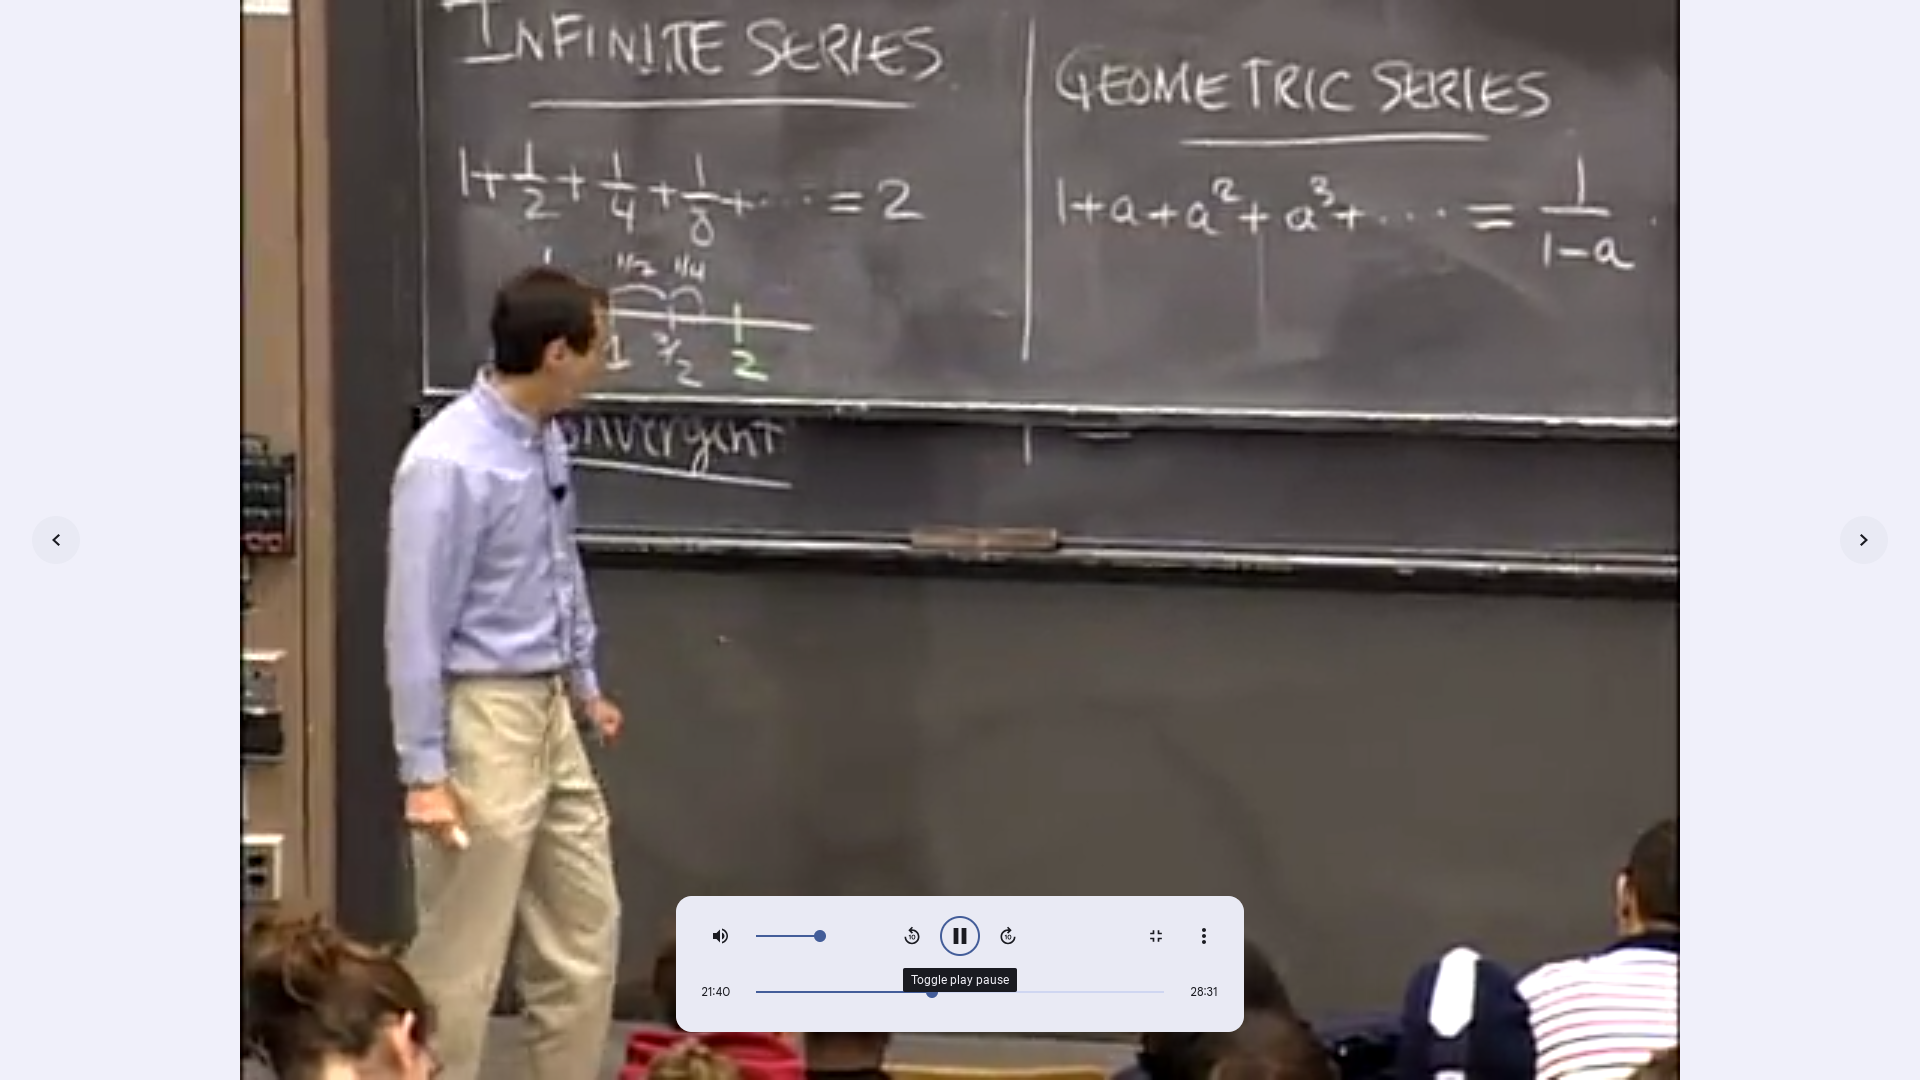 INFINITE SERIES
1+1/2+1/4+1/8+····=2
1/2 1/4
1 3/2 2
onvergent
GEOMETRIC SERIES
1+a+a²+a³+····=1/1-a
10
10
Toggle play pause
21:40
28:31